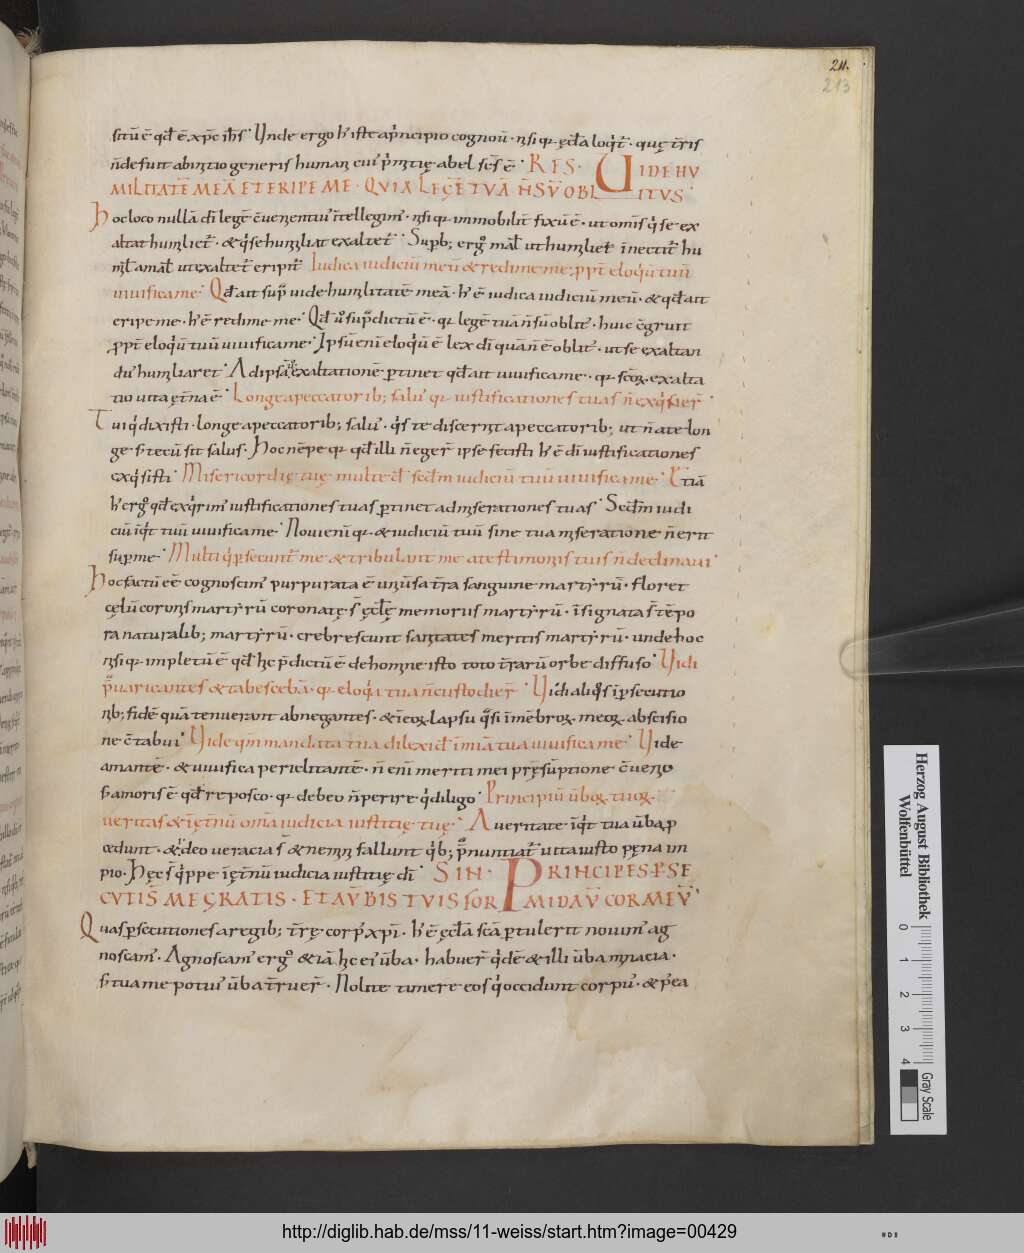 211.
213
sitū ē qđ ē xp̄c ih̄s. Unde ergo h iste a pncipio cognou̅. nisi q; ęcl̄a loqt̄. quę tr̄is
n̄ defuit ab initio generis humani cui primitię abel sc̄s ē. RES. UIDE HU
MILITATĒ MEĀ ET ERIPE ME. QUIA LEGĒ TUĀ N̄ SŪ OBLITUS.
Hoc loco nullā di legē
altat humiliet̄. & q̇ se humiliat exaltet̄. Supb; ergo
exaltet̄ eripit̄. Iudica iudiciū meū & redime me. ppt̄ eloq̇ū tuū
uiuifica me. Qđ ait sup̄ uide humilitatē meā. h ē iudica iudiciū meū. & qđ ait
eripe me. h ē redime me. Qđ sup̄ dictū ē. q; legē tuā n̄ sū oblit'. huic c̄gruit
ppt̄ eloq̇ū tuū uiuifica me. Ipsū enī eloq̇ū ē lex di quā n̄ ē oblit'. ut se exaltan
do humiliaret. Ad ipsā exaltationē ptinet qđ ait uiuifica me. exalta
tio uita ęt̄na ē. Longe a peccatorib; salus q; iustificationes tuas n̄ exq̇sier̄.
Tu iq̇ dixisti. longe a peccatorib; salu'. q̇s te discernit a peccatorib; ut n̄ a te lon
ge s; tecū sit salus. Hoc nēpe q; qđ illi n̄ eger̄ ipse fecisti h ē di iustificationes
exq̇sisti. Misericordię tuę multę dn̄e scd̄m iudiciū tuū uiuifica me. Etiā
h ergo qđ exq̇rim' iustificationes tuas ptinet ad miserationes tuas. Scd̄m iudi
ciū iq̇t tuū uiuifica me. Noui enī q; & iudiciū tuū sine tua miseratione n̄ erit
sup me. Multi q̇ psecunt̄ me & tribulant me a testimoniis tuis n̄ declinaui.
Hoc factū eē cognoscim' purpurata ē uniūsa tr̄a sanguine martyrū. floret
cęlū coronis martyrū coronatę s̄ ęclę memoriis martyrū. īsignata s̄ tēpo
ra natalib; martyrū. crebrescunt sanitates meritis martyrū. unde hoc
nisi q; impletū ē qđ hic p̄dictū ē de homine isto toto tr̄arū orbe diffuso. Uidi
p̄uaricantes & tabescebā. q; eloq̇a tua n̄ custodier̄. Uidi aliq̇s ī psecutio
nib; fidē quā tenuerant abnegantes. & ī eoꝝ lapsu q̇si ī mēbroꝝ meoꝝ abscisio
ne c̄tabui. Uide qm̄ mandata tua dilexi dn̄e ī mia tua uiuifica me. Uide
amantē. & uiuifica periclitantē. n̄ enī meriti mei pręsūptione c̄uenio
s; amoris ē qđ reposco. q; debeo n̄ perire q̇ diligo. Principiū ūboꝝ tuoꝝ
ueritas & ī ęt̄nū om̄a iudicia iustitię tuę. A ueritate iq̇t tua ūba p
cedunt. & ideo ueracia s̄ & neminē fallunt q̇b; p̄nuntiat̄ uita iusto pęna im
pio. Hęc s̄ q̇ppe ī ęt̄nū iudicia iustitię di. SIN. PRINCIPES PSE
CUTI S̄ ME GRATIS. ET A ŪBIS TUIS FORMIDAŪ COR MEŪ.
Quas psecutiones a regib; tr̄ę corp' xpi. h ē ęcl̄a scā ptulerit nouim' ag
noscam'. Agnoscam' ergo & iā hic ei' ūba. habuer̄ q̇dē & illi ūba minacia.
s; tua me potiu' ūba tr̄ruer̄. Nolite timere eos q̇ occidunt corpu'. & p' ea
Herzog August Bibliothek
Wolfenbüttel
0 1 2 3 4
Gray Scale
http://diglib.hab.de/mss/11-weiss/start.htm?image=00429